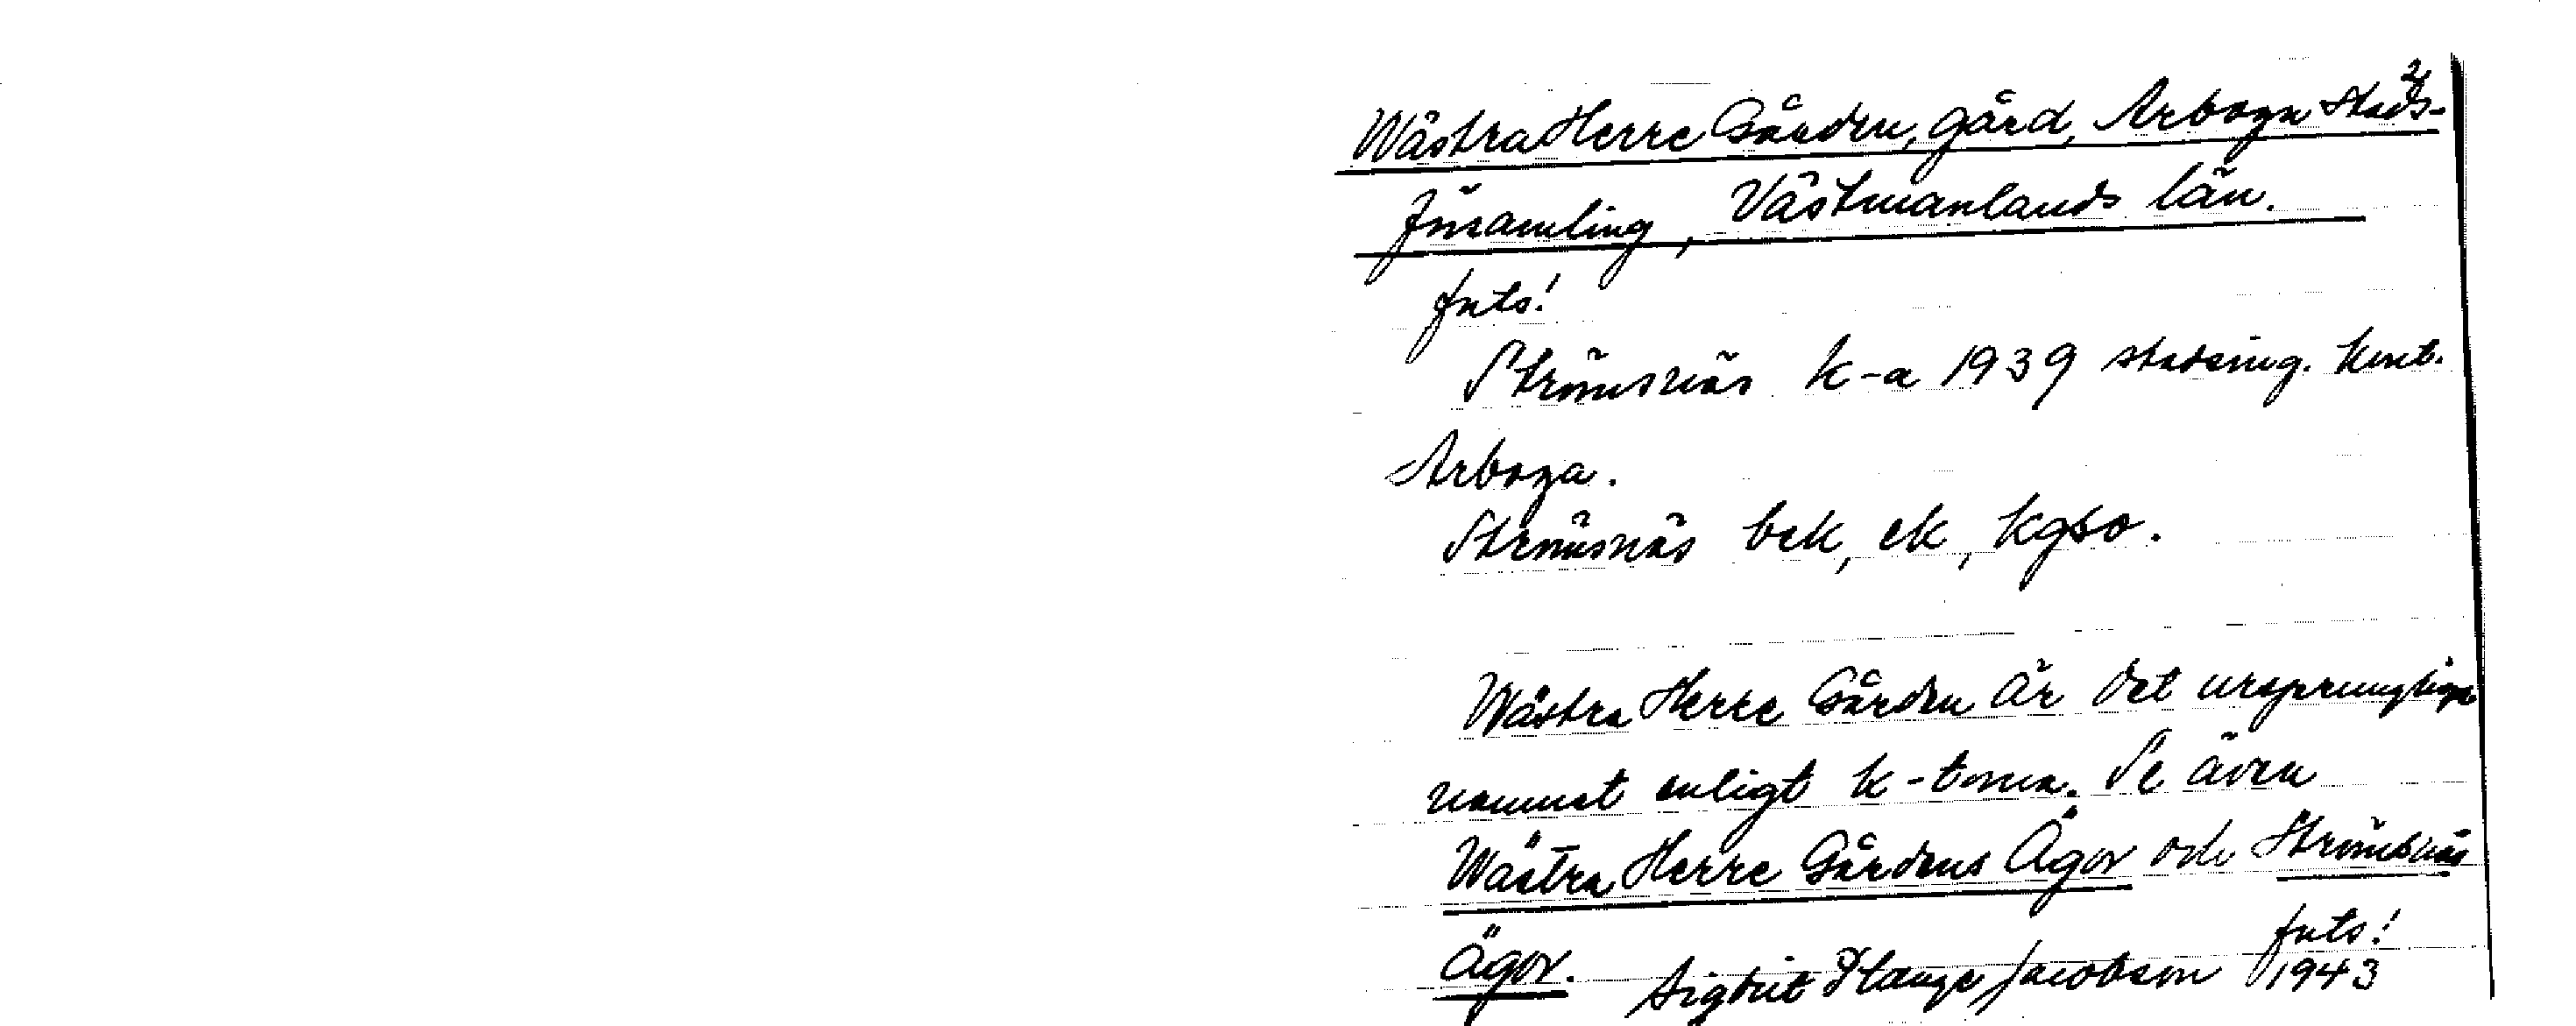 2
Wästra Herre Gården, gård, Arboga stads-
församling, Västmanlands län.
forts!
Strömsnäs k-a 1939 stadsing. kont.
Arboga.
Strömsnäs bek, ek, kgso.
Wästra Herre Gården är det ursprungliga
namnet enligt k-torna. Se även
Wästra Herre Gårdens Ägor och Strömsnäs
Ägor.
forts!
Sigbrit Plange Jacobson 1943